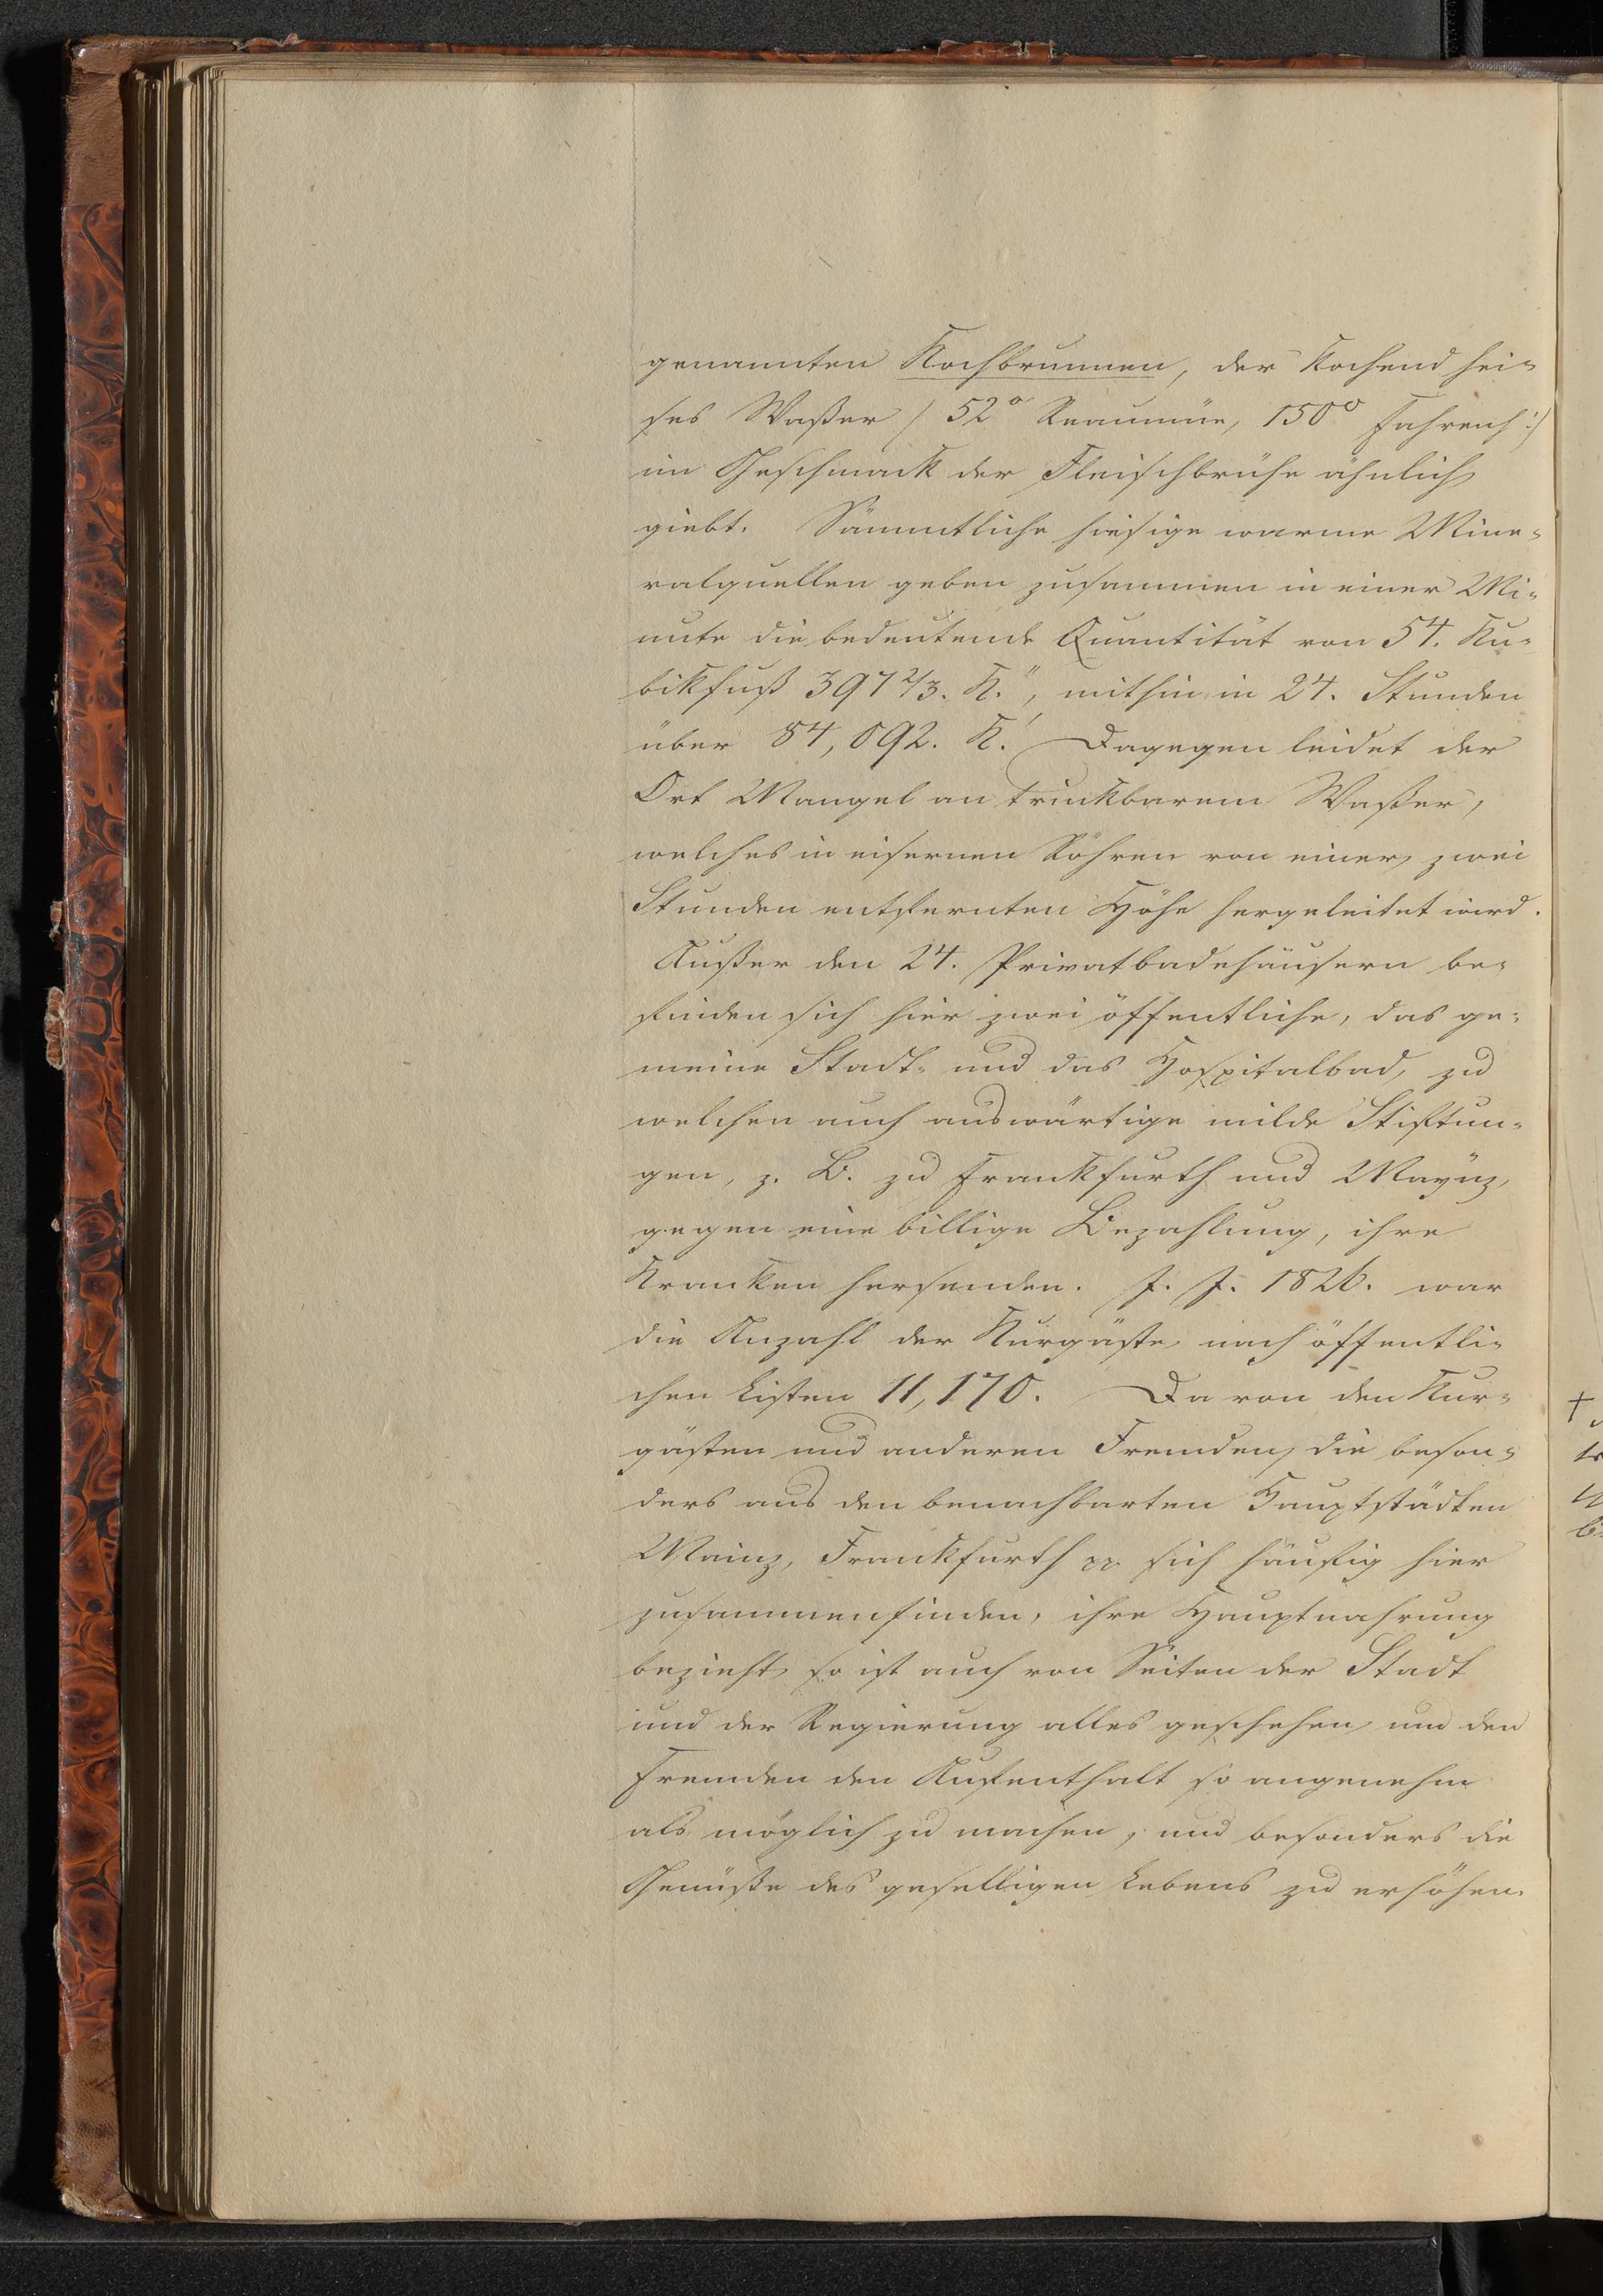 genannten Kochbrunnen, der kochend hei-
ses Waßer /: 52° Reaumür, 150° Fahrenh :/
im Geschmack der Fleischbrühe ähnlich
giebt. Sämmtliche hiesige warme Mine-
ralquellen geben zusammen in einer Mi-
nute die bedeutende Quantität von 54. Ku-
bikfuß 397 2/3. K.", mithin in 24. Stunden
über 84,092. K.' Dagegen leidet der
Ort Mangel an trinkbarem Waßer,
welches in eisernen Röhren von einer, zwei
Stunden entfernten Höhe hergeleitet wird.
Außer den 24. Privatbadehäusern be-
finden sich hier zwei öffentliche, das ge-
meine Stadt- und das Hospitalbad, zu
welchen auch auswärtige milde Stiftun-
gen, z. B. zu Frankfurth und Maynz,
gegen eine billige Bezahlung, ihre
Kranken hersenden. J. J. 1826. war
die Anzahl der Kurgäste nach öffentli-
chen Listen 11,170. Da von den Kur-
gästen und anderen Fremden, die beson-
ders aus den benachbarten Hauptstädten
Mainz, Frankfurth pp. sich häufig hier
zusammenfinden, ihre Hauptnahrung
bezieht, so ist auch von Seiten der Stadt
und der Regierung alles geschehen, um den
Fremden den Aufenthalt so angenehm
als möglich zu machen, und besonders die
Genüße des geselligen Lebens zu erhöhen.